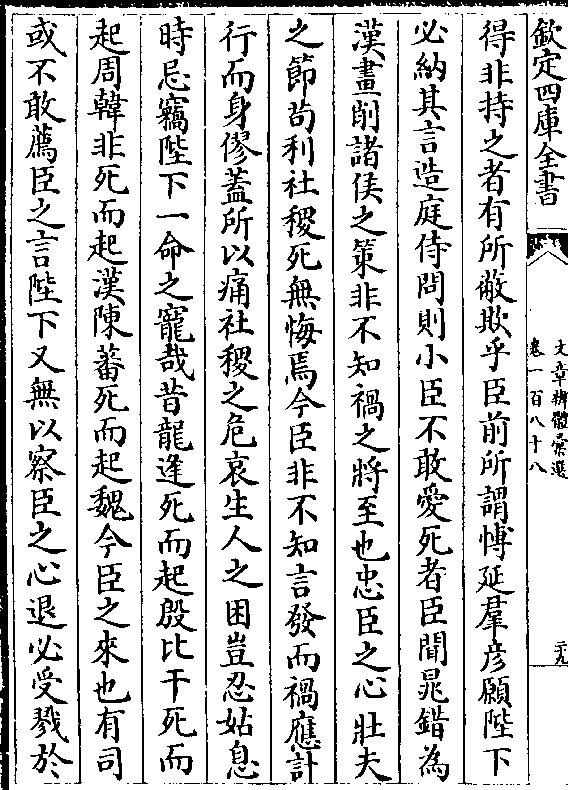 欽定四庫全書
文章辨體彙選
卷一百八十八
二十九
得非持之者有所蔽欺乎臣前所謂博延羣彥願陛下
必納其言造庭侍問則小臣不敢愛死者臣聞晁錯為
漢畫削諸侯之策非不知禍之將至也忠臣之心壯夫
之節苟利社稷死無悔焉今臣非不知言發而禍應計
行而身僇蓋所以痛社稷之危哀生人之困豈忍姑息
時忌竊陛下一命之寵哉昔龍逢死而起殷比干死而
起周韓非死而起漢陳蕃死而起魏今臣之來也有司
或不敢薦臣之言陛下又無以察臣之心退必受戮於